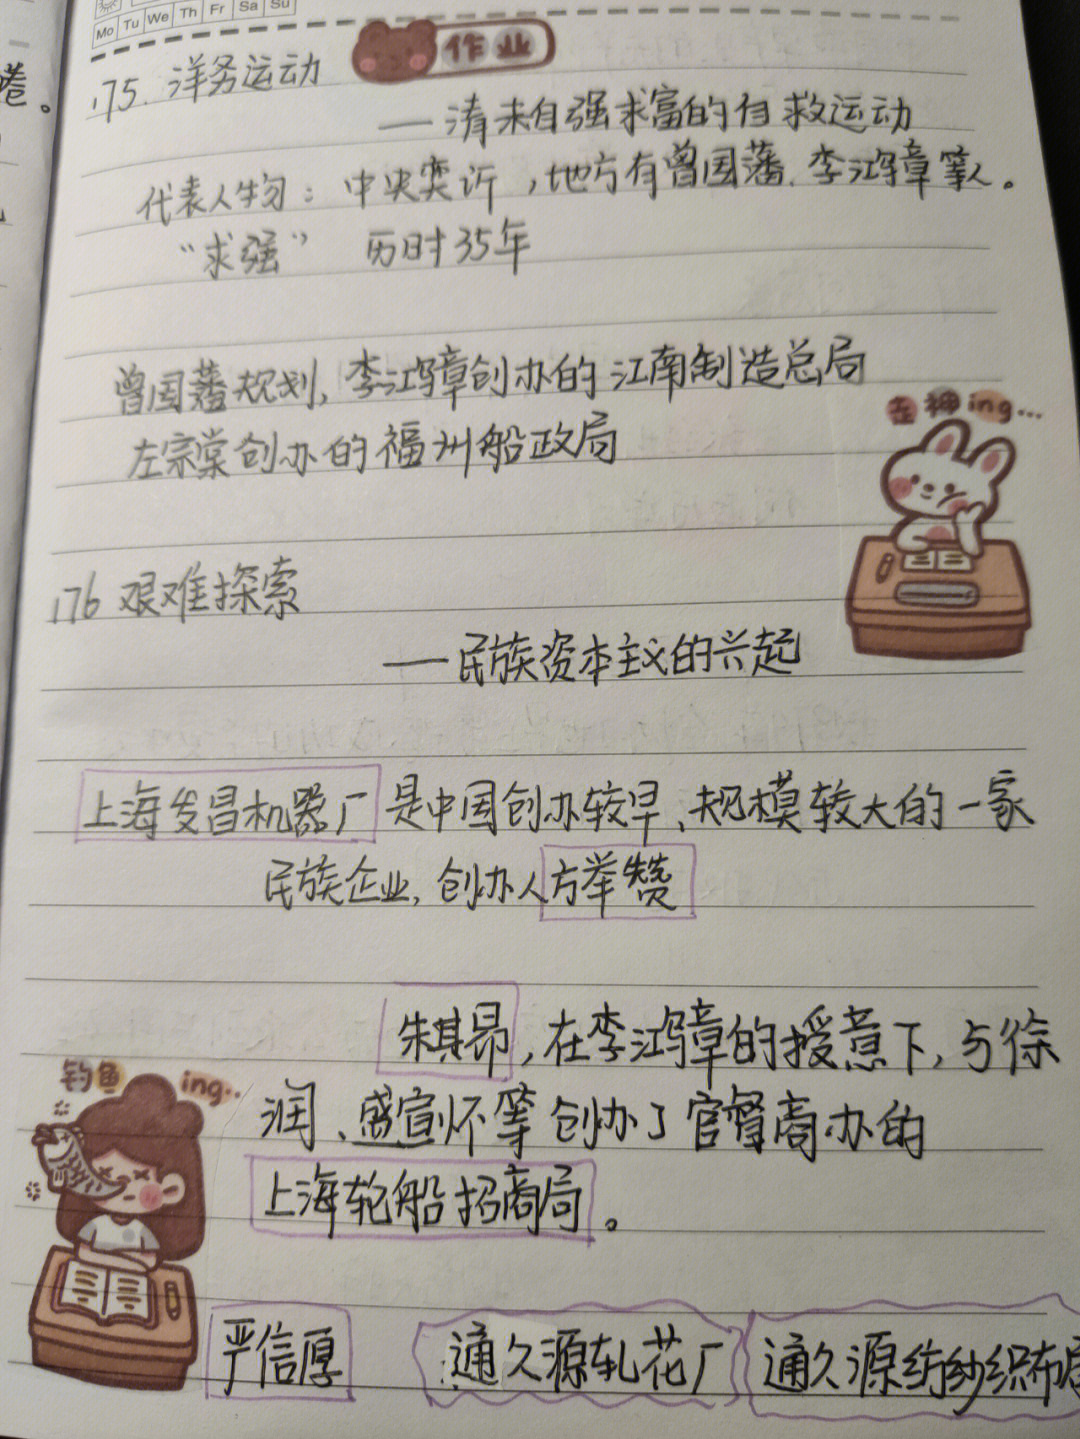 Mo Tu We Th Fr Sa Su
作业
175. 洋务运动
——清末自强求富的自救运动
代表人物：中央奕䜣，地方有曾国藩、李鸿章等人。
“求强” 历时35年
曾国藩规划，李鸿章创办的江南制造总局
左宗棠创办的福州船政局
走神ing...
176 艰难探索
——民族资本主义的兴起
上海发昌机器厂是中国创办较早、规模较大的一家
民族企业，创办人方举赞
朱其昂，在李鸿章的授意下，与徐
润、盛宣怀等创办了官督商办的
上海轮船招商局。
钓鱼ing..
严信厚 通久源轧花厂 通久源纺纱织布局